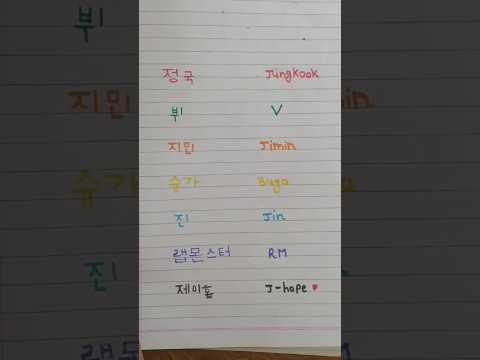 정국 Jungkook
뷔 V
지민 Jimin
슈가 Suga
진 Jin
랩몬스터 RM
제이홉 J-hope ♥